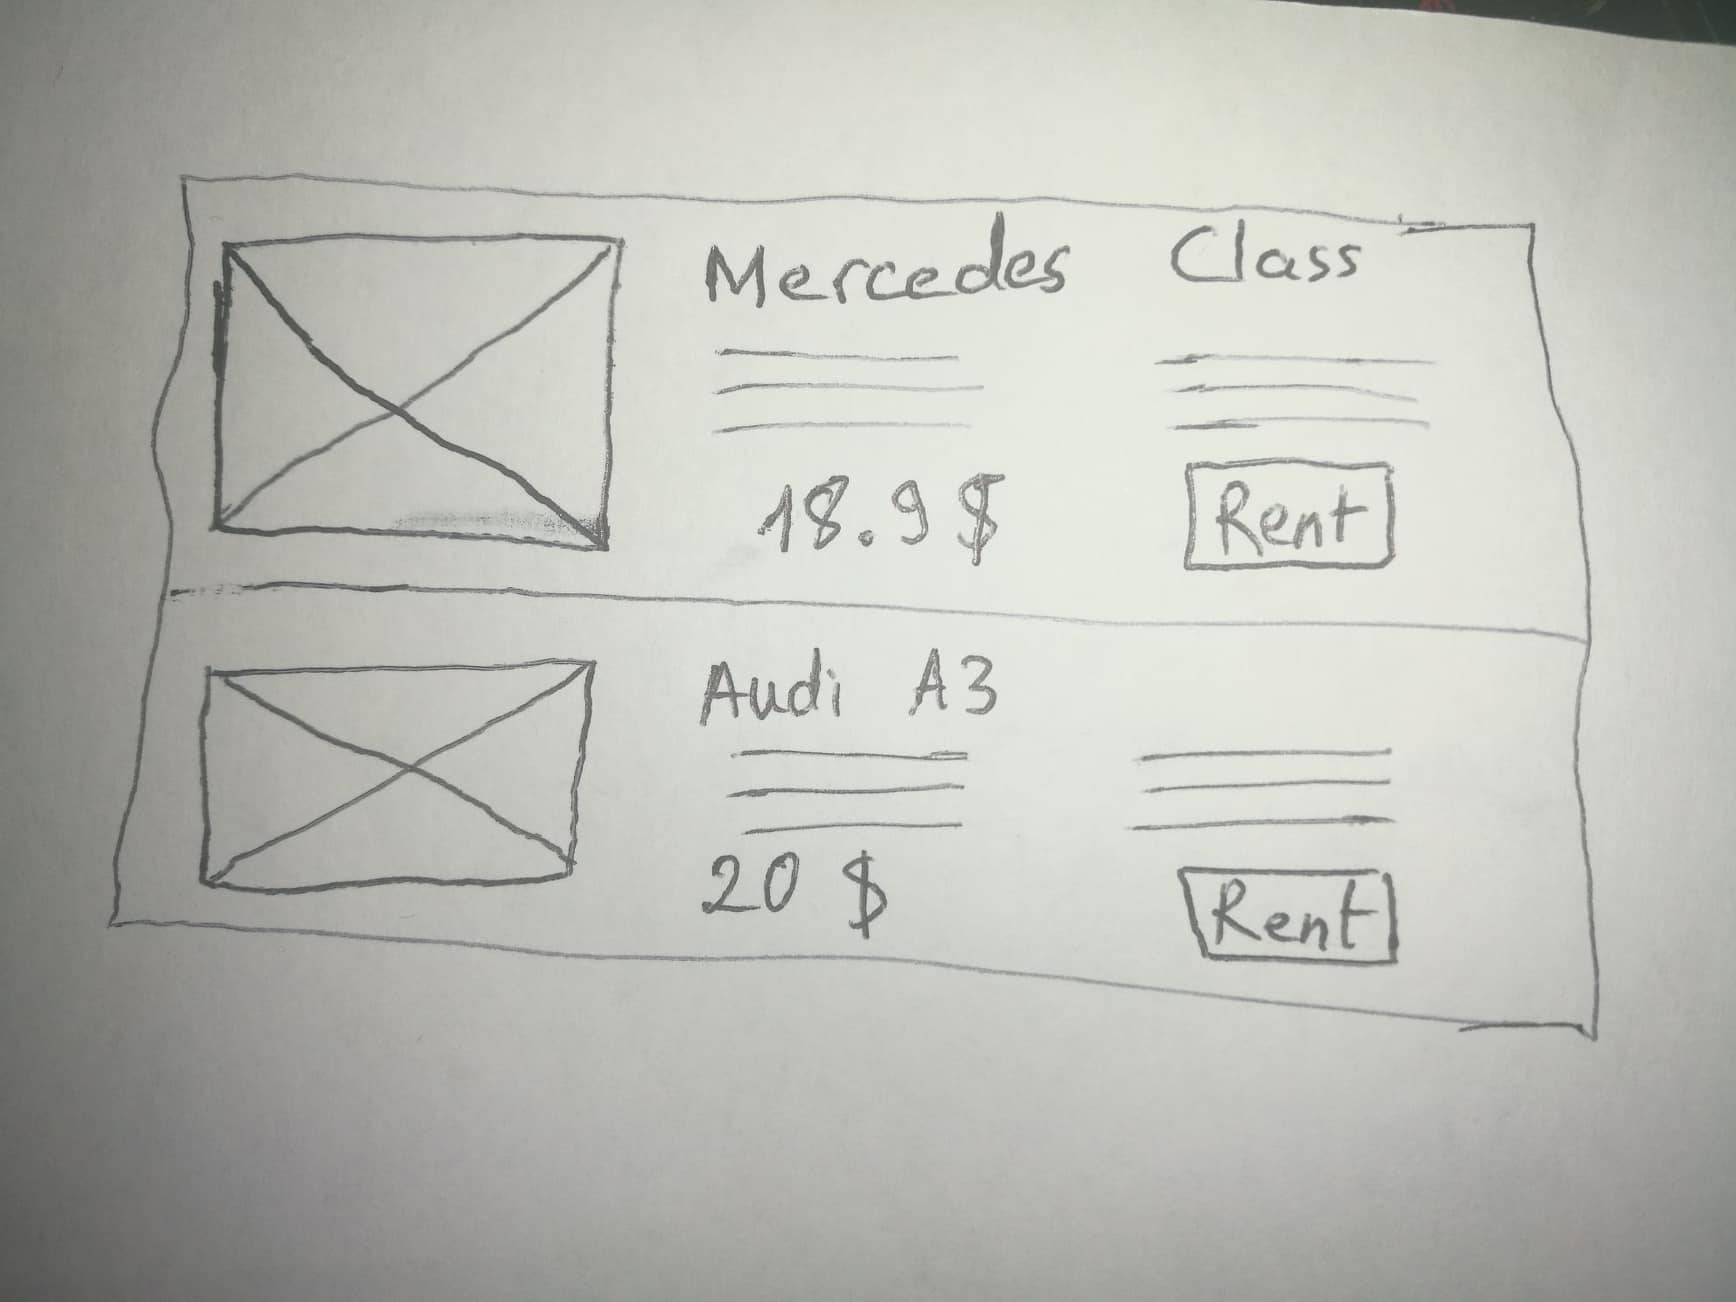 Mercedes Class
18.9 $
Rent
Audi A3
20 $
Rent